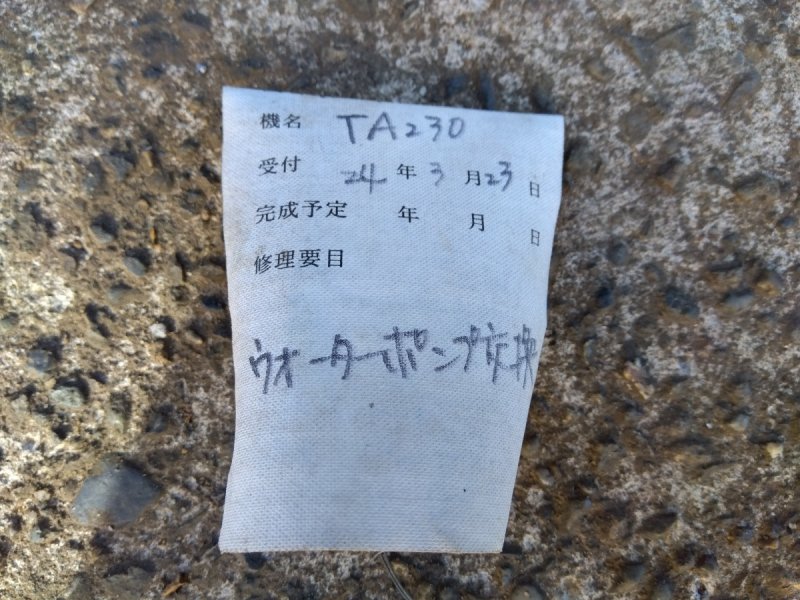 機名 TA230
受付 24年3月23日
完成予定 年 月 日
修理要目
ウォーターポンプ交換